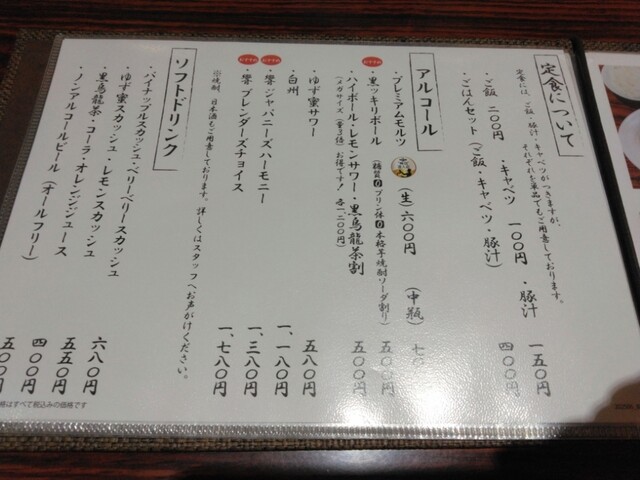 定食について
定食には、ご飯・豚汁・キャベツがつきますが、
それぞれを単品でもご用意しております。
・ご飯 二〇〇円 ・キャベツ 一〇〇円 ・豚汁 一五〇円
・ごはんセット(ご飯・キャベツ・豚汁) 四〇〇円
アルコール
・プレミアムモルツ (生)六〇〇円 (中瓶)
おすすめ
・黒ッキリボール (糖質0プリン体0本格芋焼酎ソーダ割り) 五〇〇円
・ハイボール・レモンサワー・黒烏龍茶割 五〇〇円
(メガサイズ(量3倍)お得です!各一二〇〇円)
・ゆず蜜サワー 五八〇円
・白州 一、一八〇円
おすすめ
・響 ジャパニーズハーモニー 一、三八〇円
おすすめ
・響 ブレンダーズチョイス 一、七八〇円
※焼酎、日本酒もご用意しております。詳しくはスタッフへお声がけください。
ソフトドリンク
・パイナップルスカッシュ・ベリーベリースカッシュ 六八〇円
・ゆず蜜スカッシュ・レモンスカッシュ 五五〇円
・黒烏龍茶・コーラ・オレンジジュース 四〇〇円
・ノンアルコールビール(オールフリー) 五〇〇円
格はすべて税込みの価格です